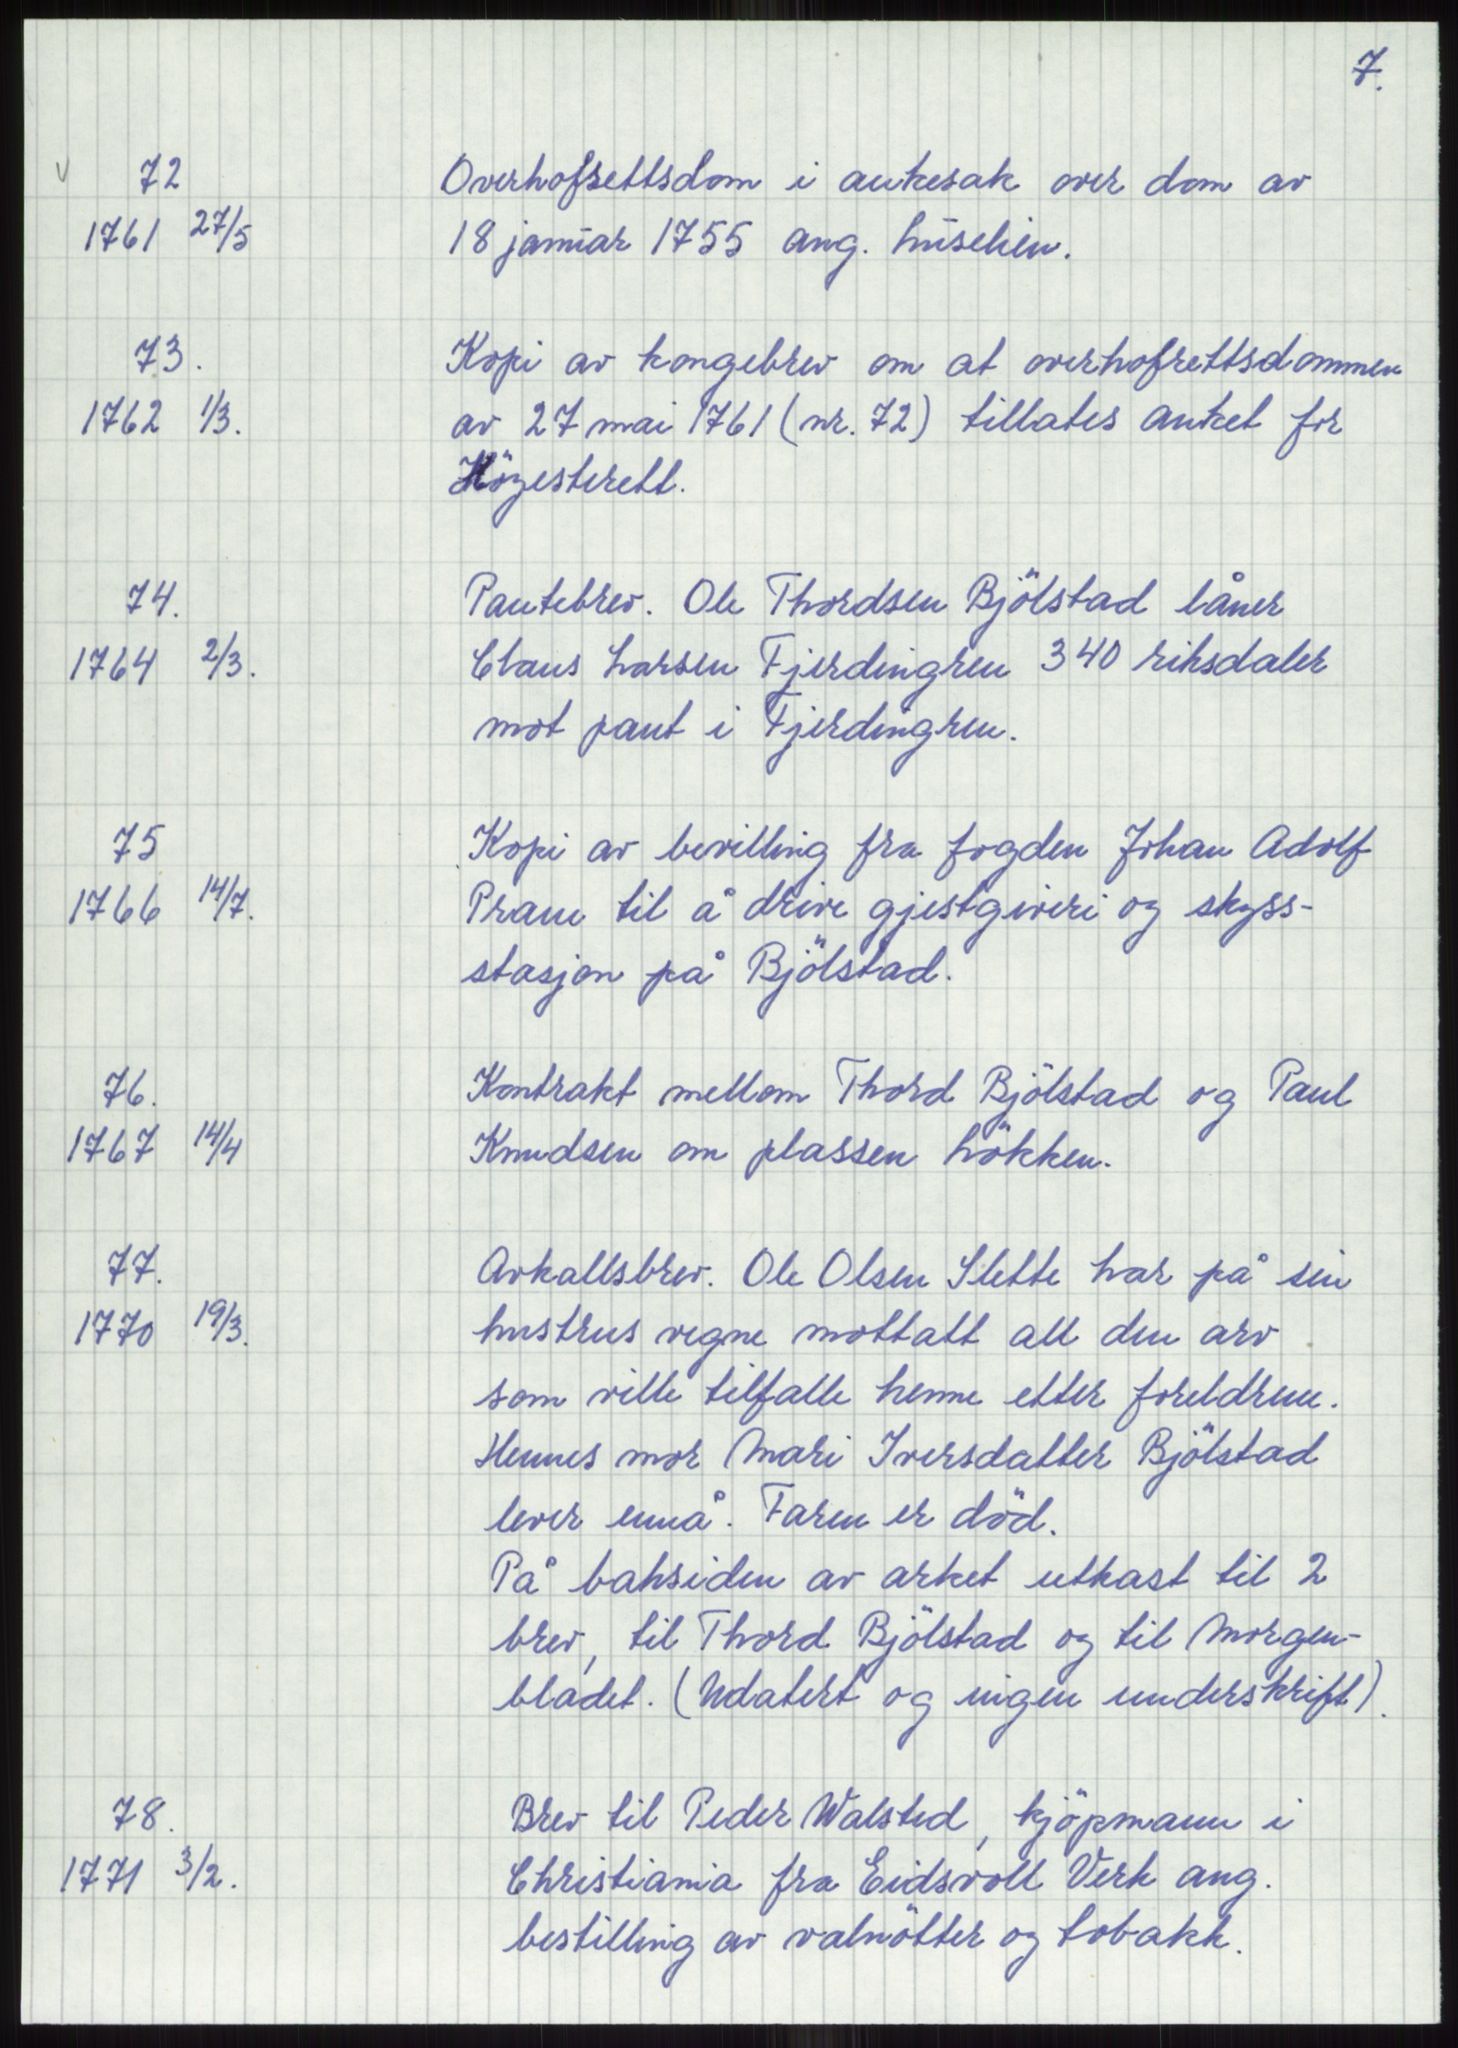 7.
v 72 Overhofsettsdom i ankesak over dom av
1761 27/5 18 januar 1755 ang. huseliën.
73. Kopi av kongebrev om at overhofrettsdommen
1762 1/3. av 27 mai 1761 (nr. 72) tillates anket for
Högesterett.
74. Pantebrev. Ole Thordsen Bjölstad låner
1764 2/3. Claus Larsen Fjerdingren 340 riksdaler
mot pant i Fjerdingren.
75 Kopi av bevilling fra fogden Johan Adolf
1766 14/7. Pram til å drive gjestgiveri og skyss-
stasjon på Bjölstad.
76. Kontrakt mellom Thord Bjölstad og Paul
1767 14/4 Knudsen om plassen Lökken.
77. Avkallsbrev. Ole Olsen Slette har på sin
1770 19/3. hustrus vegne mottatt all den arv
som ville tilfalle henne etter foreldrene.
Hennes mor Mari Iversdatter Bjölstad
lever ennå. Faren er död.
På baksiden av arket utkast til 2
brev, til Thord Bjölstad og til Morgen-
bladet. (Udatert og ingen underskrift).
78. Brev til Peder Walsted, kjöpmann i
1771 3/2. Christiania fra Eidsvoll Verk ang.
bestilling av valnötter og tobakk.